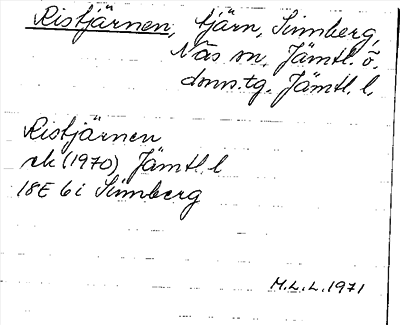 Ristjärnen, tjärn, Sinnberg,
Näs sn, Jämtl. ö.
dmns.tg. Jämtl. l.
Ristjärnen
ek (1970) Jämtl. l
18E 6i Sinnberg
M.L.L. 1971